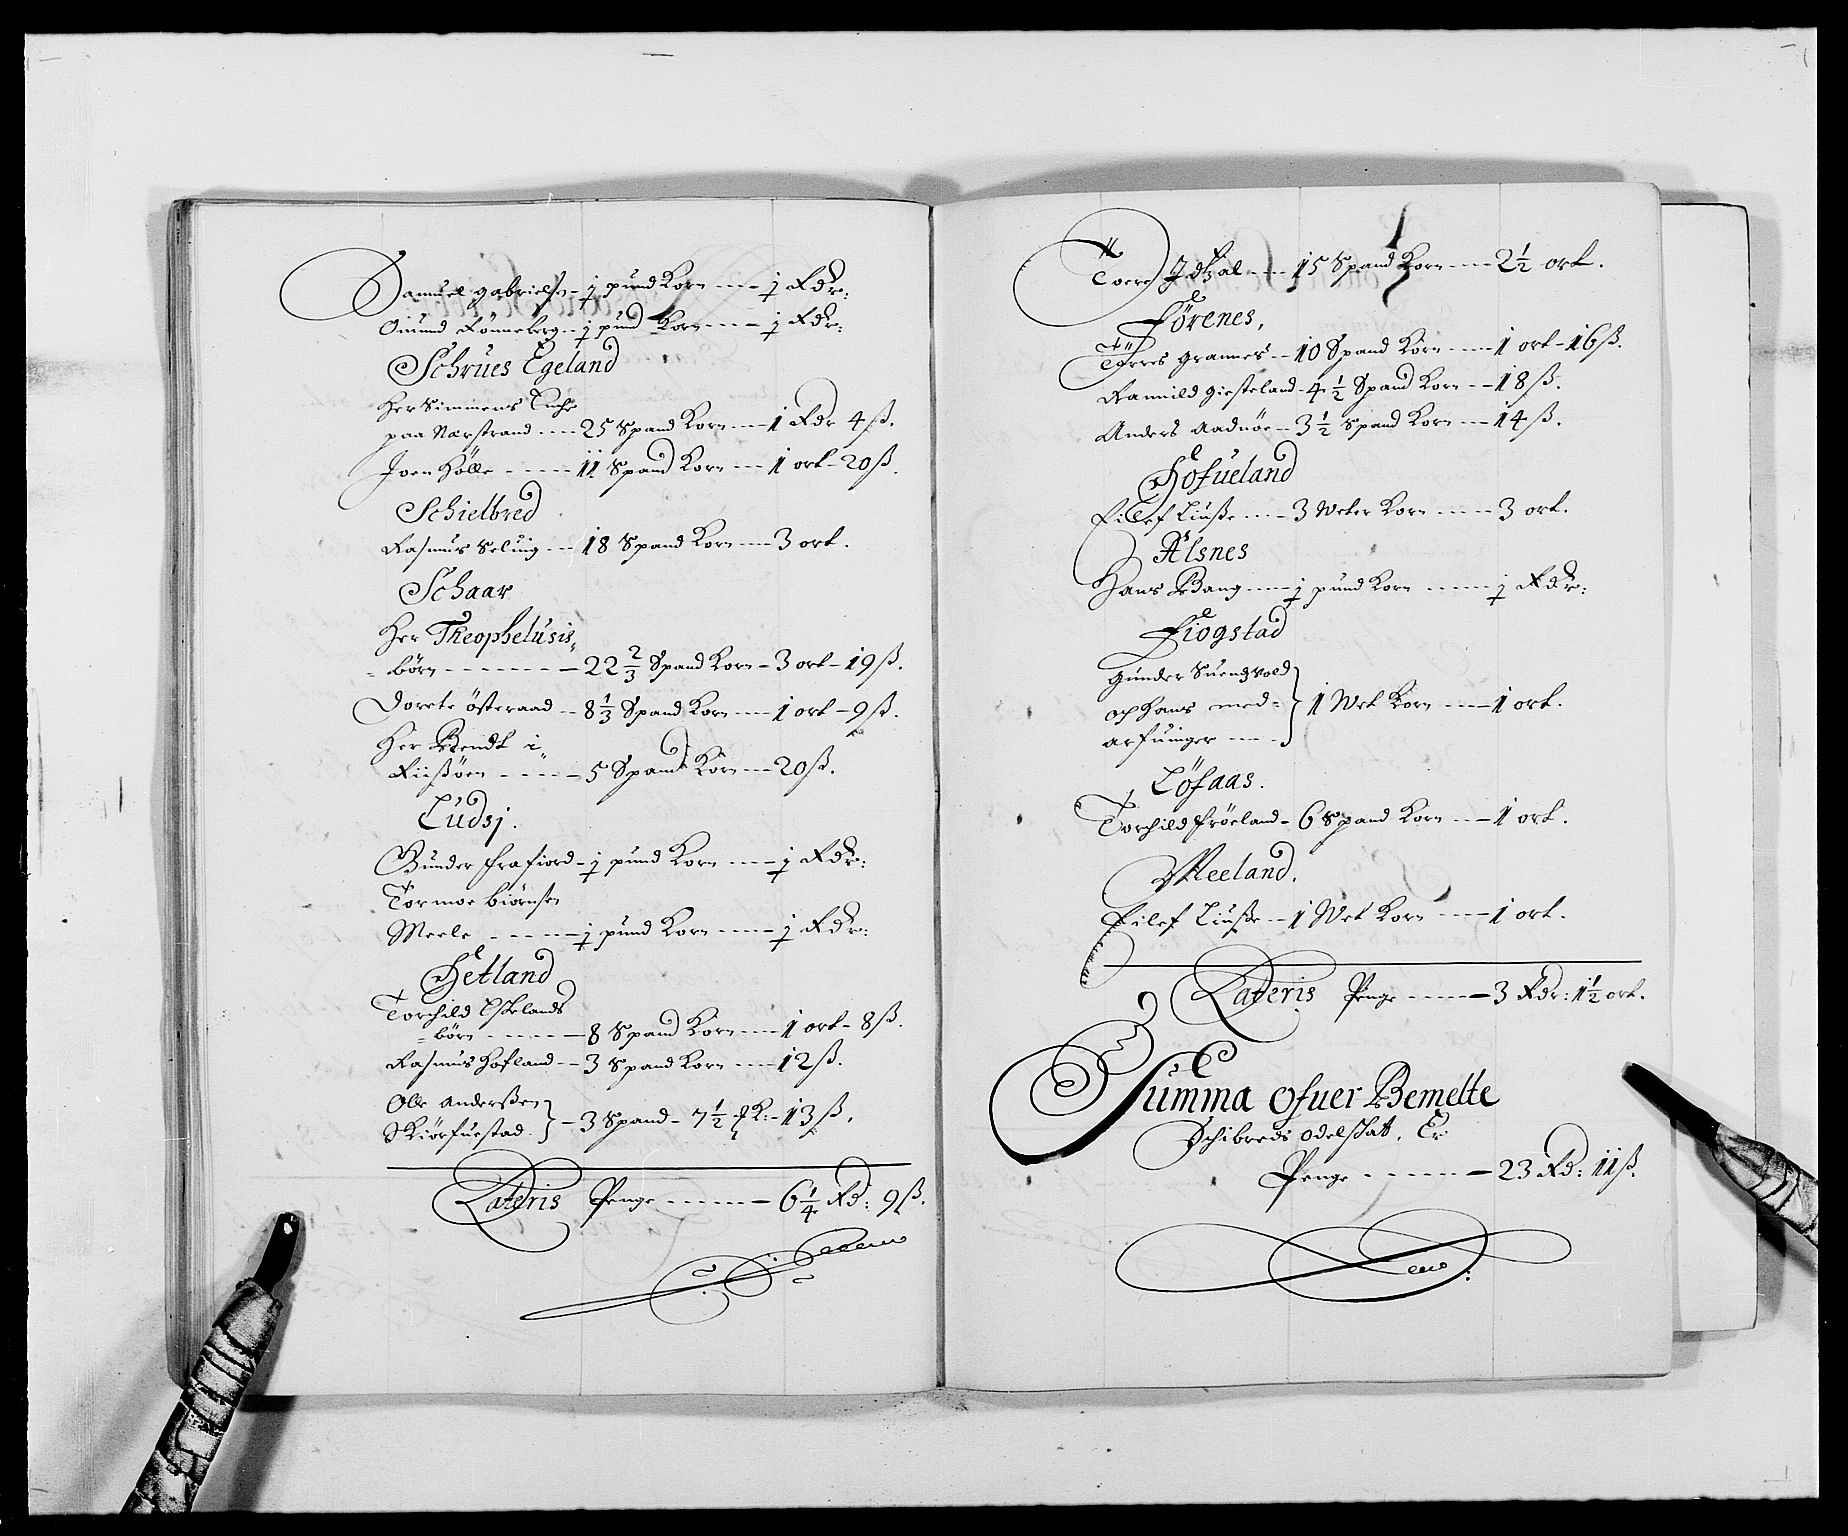 Samuel Gabrielsn - j pund Korn - - - j Rdr:
Omund Rönneberg - j pund Korn - - - j Rdr:
Schrues Egeland
Her Simmens Enche
paa Narstrand - - - 25 Spand Korn - - - 1 Rdr 4 ß.
Joen Hölle - - - - - 11 Spand Korn - - - 1 ort - 20 ß.
Schielbred
Rasmus Seluig - - - 18 Spand Korn - - - 3 ort.
Schaar
Her Theophelusis
börn - - - - - - - - 22 2/3 Spand Korn - 3 ort - 19 ß.
Dorete österaad - - 8 1/3 Spand Korn - - - 1 ort - 9 ß.
Her Bendt i
Fiißöen - - - - - 5 Spand Korn - - - 20 ß.
Ludsj.
Gunder frafiord - j pund Korn - - - - j Rdr:
Tormoe biörnsen
Meele - - - - - j pund Korn - - - - j Rdr:
Hetland
Torchild Eskelands
börn - - - - - - 8 Spand Korn - - - 1 ort - 8 ß.
Rasmus Hofland - - 3 Spand Korn - - - 12 ß.
Olle Anderßen
Skiörfuestad. } - 3 Spand - 7 1/2 K: - 13 ß.
Lateris Penge - - - - - - 6 1/4 Rd: 9 ß.
Toere Idtzal - - - 15 Spand Korn - - - 2 1/2 ort.
Förenes,
Törres Grannes - - 10 Spand Korn - - - 1 ort - 16 ß.
Rannild Giesteland - 4 1/2 Spand Korn - - 18 ß.
Anders Aadnöe - 3 1/2 Spand Korn - - - 14 ß.
Hofueland
Eilef Liuße - - - - 3 Weter Korn - - - - 3 ort.
Alsnes
Hans Bang - - - - j pund Korn - - - - - j Rdr:
Fiogstad
Gunder Suendzvold
och Hans med- } 1 Wet Korn - - - 1 ort.
arfuinger - - -
Löfaas.
Torchild fröeland - 6 Spand Korn - - - 1 ort.
Meeland.
Eilef Liuße - - 1 Wet Korn - - - - 1 ort.
Lateris Penge - - - - - 3 Rdr: 1 1/2 ort.
Summa Ofuer Bemelte
Schibreds Odelskatt, Er
Penge - - - - - - 23 Rd: 11 ß.